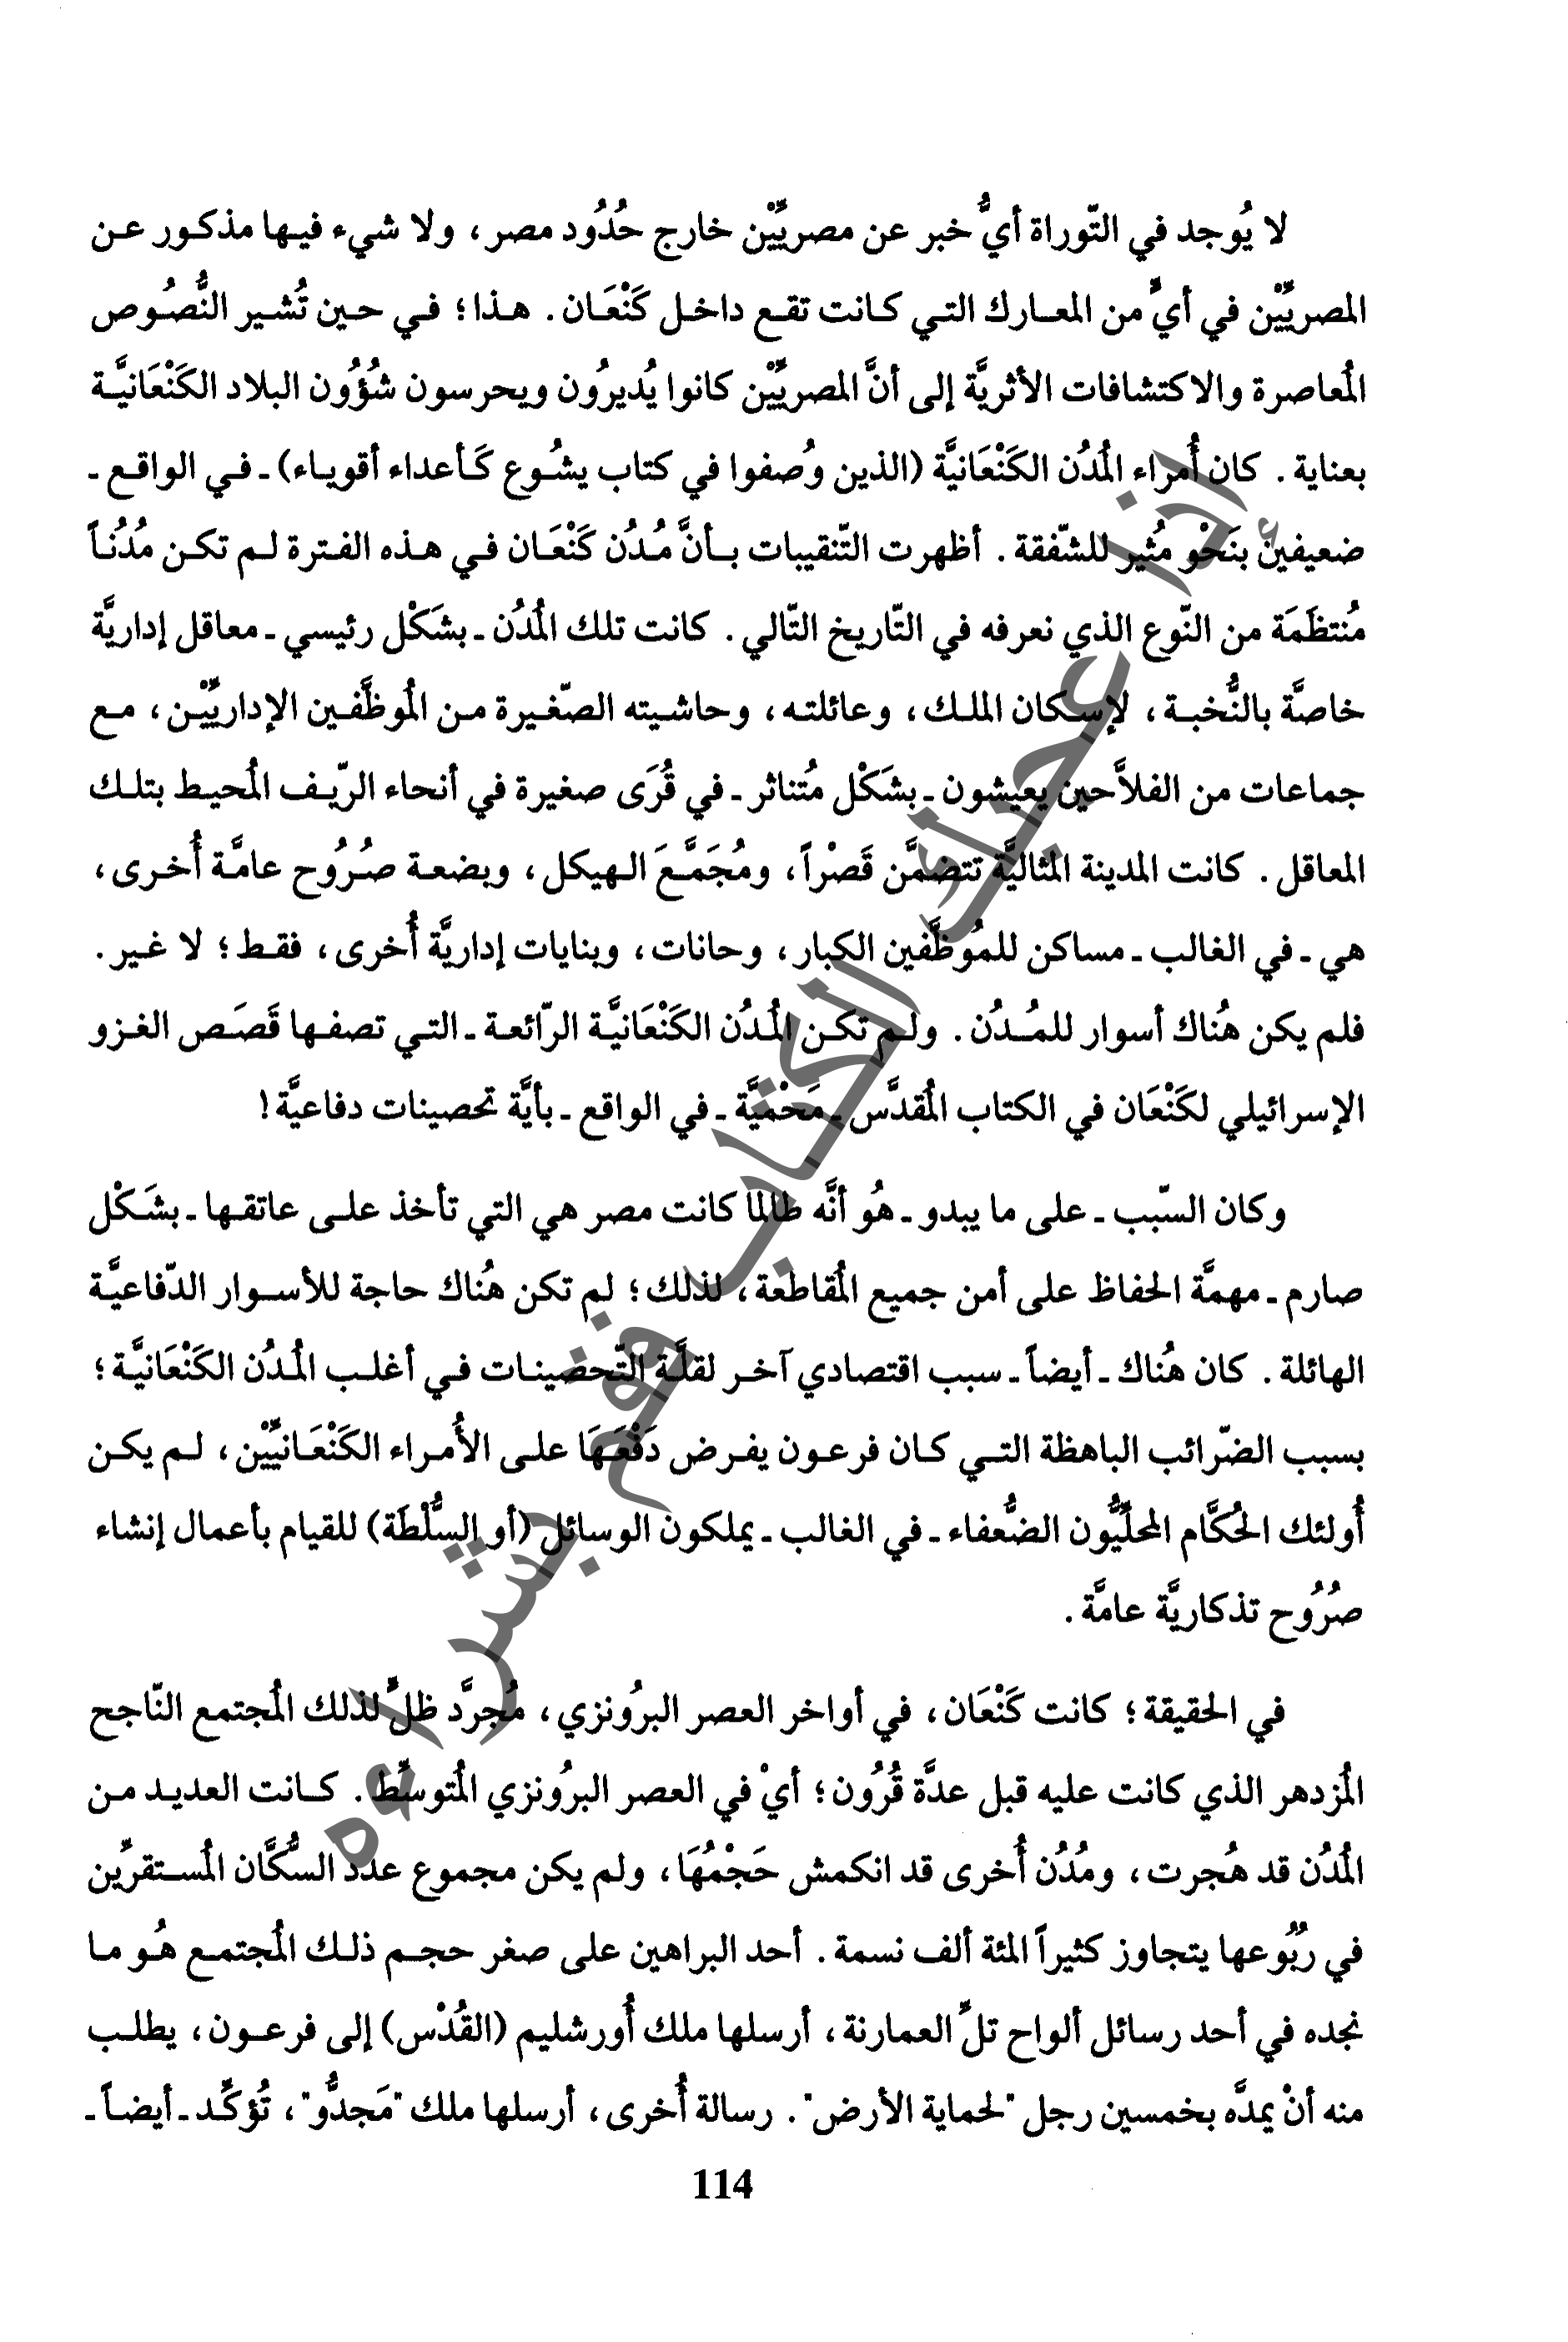 لا يُوجد في التّوراة أيُّ خبر عن مصريِّيْن خارج حُدُود مصر، ولا شيء فيها مذكور عن
المصريِّيْن في أيٍّ من المعارك التي كانت تقع داخل كَنْعَان. هذا؛ في حين تُشير النُّصُوص
المُعاصرة والاكتشافات الأثريَّة إلى أنَّ المصريِّيْن كانوا يُديرُون ويحرسون شُؤُون البلاد الكَنْعَانيَّة
بعناية. كان أُمراء المُدُن الكَنْعَانيَّة (الذين وُصفوا في كتاب يشُوع كَأعداء أقوياء) ـ في الواقع ـ
ضعيفين بنَحْو مُثير للشّفقة. أظهرت التّنقيبات بأنَّ مُدُن كَنْعَان في هذه الفترة لم تكن مُدُناً
مُنتظَمَة من النّوع الذي نعرفه في التّاريخ التّالي. كانت تلك المُدُن ـ بشَكْل رئيسي ـ معاقل إداريَّة
خاصَّة بالنُّخبة، لإسكان الملك، وعائلته، وحاشيته الصّغيرة من المُوظَّفين الإداريِّيْن، مع
جماعات من الفلاَّحين يعيشون ـ بشَكْل مُتناثر ـ في قُرَى صغيرة في أنحاء الرّيف المُحيط بتلك
المعاقل. كانت المدينة المثاليَّة تتضمَّن قَصْراً، ومُجَمَّعَ الهيكل، وبضعة صُرُوح عامَّة أُخرى،
هي ـ في الغالب ـ مساكن للمُوظَّفين الكبار، وحانات، وبنايات إداريَّة أُخرى، فقط؛ لا غير.
فلم يكن هُناك أسوار للمُدُن. ولم تكن المُدُن الكَنْعَانيَّة الرّائعة ـ التي تصفها قَصَص الغزو
الإسرائيلي لكَنْعَان في الكتاب المُقدَّس ـ مَحْميَّة ـ في الواقع ـ بأيَّة تحصينات دفاعيَّة!
وكان السّبب ـ على ما يبدو ـ هُو أنَّه طالما كانت مصر هي التي تأخذ على عاتقها ـ بشَكْل
صارم ـ مهمَّة الحفاظ على أمن جميع المُقاطعة، لذلك؛ لم تكن هُناك حاجة للأسوار الدّفاعيَّة
الهائلة. كان هُناك ـ أيضاً ـ سبب اقتصادي آخر لقلَّة التّحصينات في أغلب المُدُن الكَنْعَانيَّة؛
بسبب الضّرائب الباهظة التي كان فرعون يفرض دَفْعَهَا على الأُمراء الكَنْعَانيِّيْن، لم يكن
أُولئك الحُكَّام المحلِّيُّون الضُّعفاء ـ في الغالب ـ يملكون الوسائل (أو السُّلْطَة) للقيام بأعمال إنشاء
صُرُوح تذكاريَّة عامَّة.
في الحقيقة؛ كانت كَنْعَان، في أواخر العصر البرُونزي، مُجرَّد ظلٍّ لذلك المُجتمع النّاجح
المُزدهر الذي كانت عليه قبل عدَّة قُرُون؛ أيْ في العصر البرُونزي المُتوسِّط. كانت العديد من
المُدُن قد هُجرت، ومُدُن أُخرى قد انكمش حَجْمُهَا، ولم يكن مجموع عدد السُّكَّان المُستقرِّين
في رُبُوعها يتجاوز كثيراً المئة ألف نسمة. أحد البراهين على صغر حجم ذلك المُجتمع هُو ما
نجده في أحد رسائل ألواح تلِّ العمارنة، أرسلها ملك أُورشليم (القُدْس) إلى فرعون، يطلب
منه أنْ يمدَّه بخمسين رجل "لحماية الأرض". رسالة أُخرى، أرسلها ملك "مَجدُّو"، تُؤكِّد ـ أيضاً ـ
114
إذا عجبك الكتاب فقم بشراءه